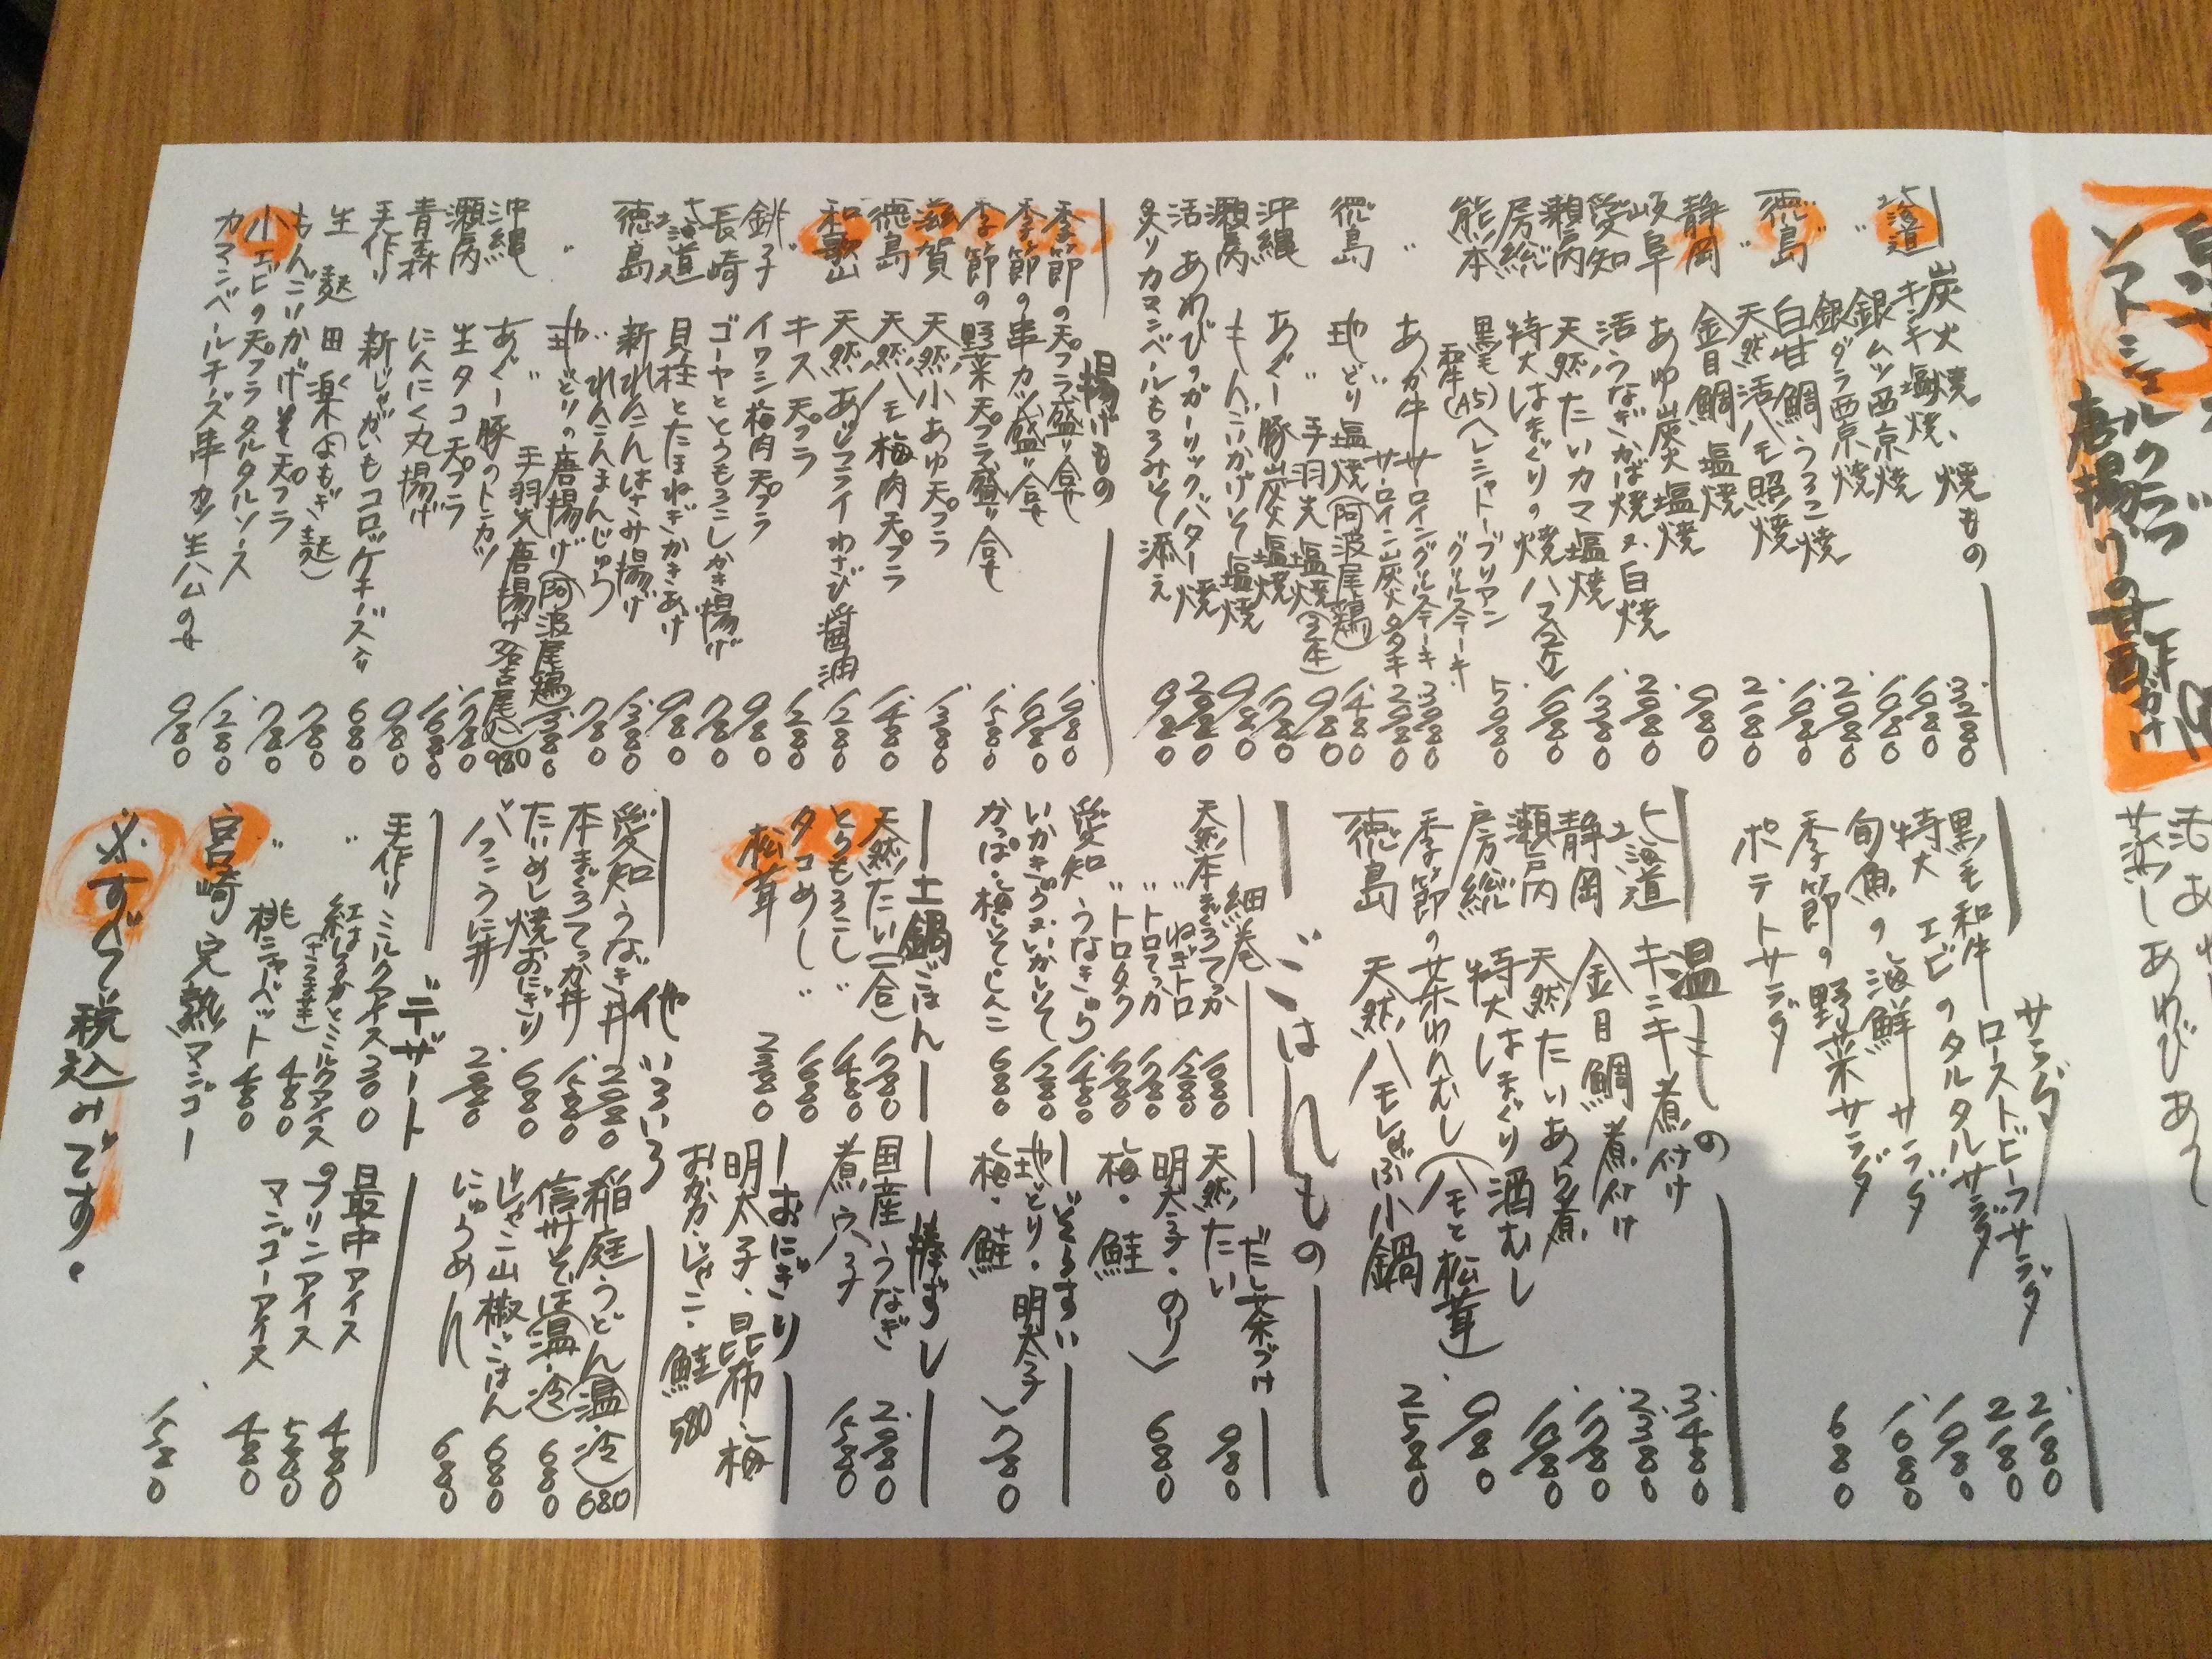 ソフトシェルクラブ
唐揚げの甘酢がけ
蒸しあわび
炭火焼、焼もの
北海道 キンキ塩焼 3280
〃 銀ムツ西京焼 1680
銀ダラ西京焼 1680
徳島 白甘鯛うろこ焼 2980
〃 天然活ハモ照焼 1980
静岡 金目鯛塩焼 2180
岐阜 あゆ炭火塩焼 980
愛知 活うなぎかば焼又、白焼 2980
瀬戸内 天然たいカマ塩焼 1380
房総 特大はまぐりの焼ハマ(2ケ) 1080
熊本 黒毛和牛(A5)ヘレシャトーブリアングリルステーキ 5980
〃 あか牛サーロイングリルステーキ 3980
サーロイン炭火タタキ 2980
徳島 地どり塩焼(阿波尾鶏) 1480
〃 手羽先塩焼(3本) 980
沖縄 あぐー豚炭火塩焼 1780
瀬戸内 もんごいかげそ塩焼 980
活あわびのガーリックバター焼 2980
炙りカマンベールもろみそ添え 980
揚げもの
季節の天プラ盛り合せ 1980
季節の串カツ盛り合せ 1680
季節の野菜天プラ盛り合せ 1580
滋賀 天然小あゆ天プラ 1380
徳島 天然ハモ梅肉天プラ 1480
和歌山 天然あじフライわさび醤油 1280
〃 キス天プラ 1280
銚子 イワシ梅肉天プラ 980
長崎 ゴーヤととうもろこしかき揚げ 780
北海道 貝柱とたまねぎかきあげ 980
徳島 新れんこんはさみ揚げ 1380
〃 れんこんまんじゅう 780
〃 地どりの唐揚げ(阿波尾鶏) 1380
〃 手羽先唐揚げ 980
沖縄 あぐー豚のトンカツ 1780
瀬戸内 生タコ天プラ 1680
青森 にんにく丸揚げ 980
手作り 新じゃがいもコロッケチーズ入り 680
生麩田楽(よもぎ麩) 780
もんごいかげそ天プラ 780
小エビの天プラタルタルソース 1280
カマンベールチーズ串カツ生ハムのせ 980
サラダ
黒毛和牛ローストビーフサラダ 2180
特大エビのタルタルサラダ 2180
旬魚の海鮮サラダ 1980
季節の野菜サラダ 1680
ポテトサラダ 680
温もの
北海道 キンキ煮付け 3480
静岡 金目鯛煮付け 2380
瀬戸内 天然たいあら煮 1780
房総 特大はまぐり酒むし 1980
季節の茶わんむし(ハモと松茸) 980
徳島 天然ハモしゃぶ小鍋 2580
ごはんもの
細巻
天然本まぐろてっか 1680
〃 ねぎトロ 1280
〃 トロてっか 1780
〃 トロタク 1780
愛知 うなきゅう 1480
いかきゅう・いかしそ 1280
かっぱ・梅しそ・しんこ 680
だし茶づけ
天然たい 980
明太子・のり
梅・鮭 680
ぞうすい
地どり・明太子
梅・鮭 780
土鍋ごはん
天然たい(一合) 1780
とうもろこし〃 1480
タコめし〃 1680
松茸〃 2380
棒ずし
国産うなぎ 2980
煮穴子 1580
おにぎり
明太子、昆布、梅
おかか、じゃこ・鮭 580
他いろいろ
愛知うなぎ丼 2980
本まぐろてっか丼 1580
たいめし焼おにぎり 680
バフンうに丼 2980
稲庭うどん(温・冷) 680
信州そば(温・冷) 680
じゃこ山椒ごはん 680
にゅうめん 680
デザート
手作り ミルクアイス 300
〃 紅はるかとミルクアイス 480
〃 桃シャーベット 480
宮崎 完熟マンゴー 1580
最中アイス 480
プリンアイス 580
マンゴーアイス 480
※すべて税込みです。